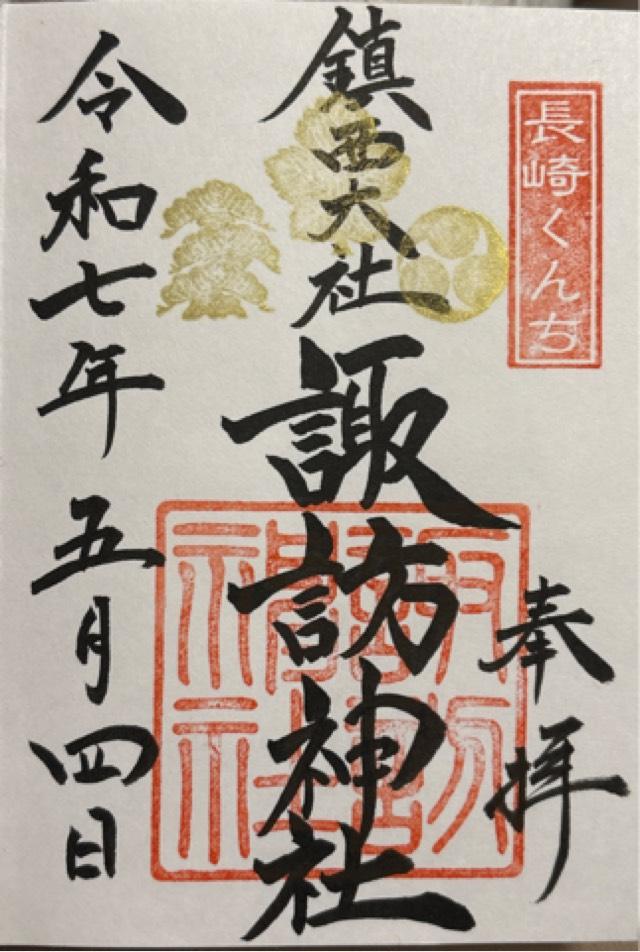 長崎くんち
奉拝
鎮西大社
諏訪神社
令和七年五月四日